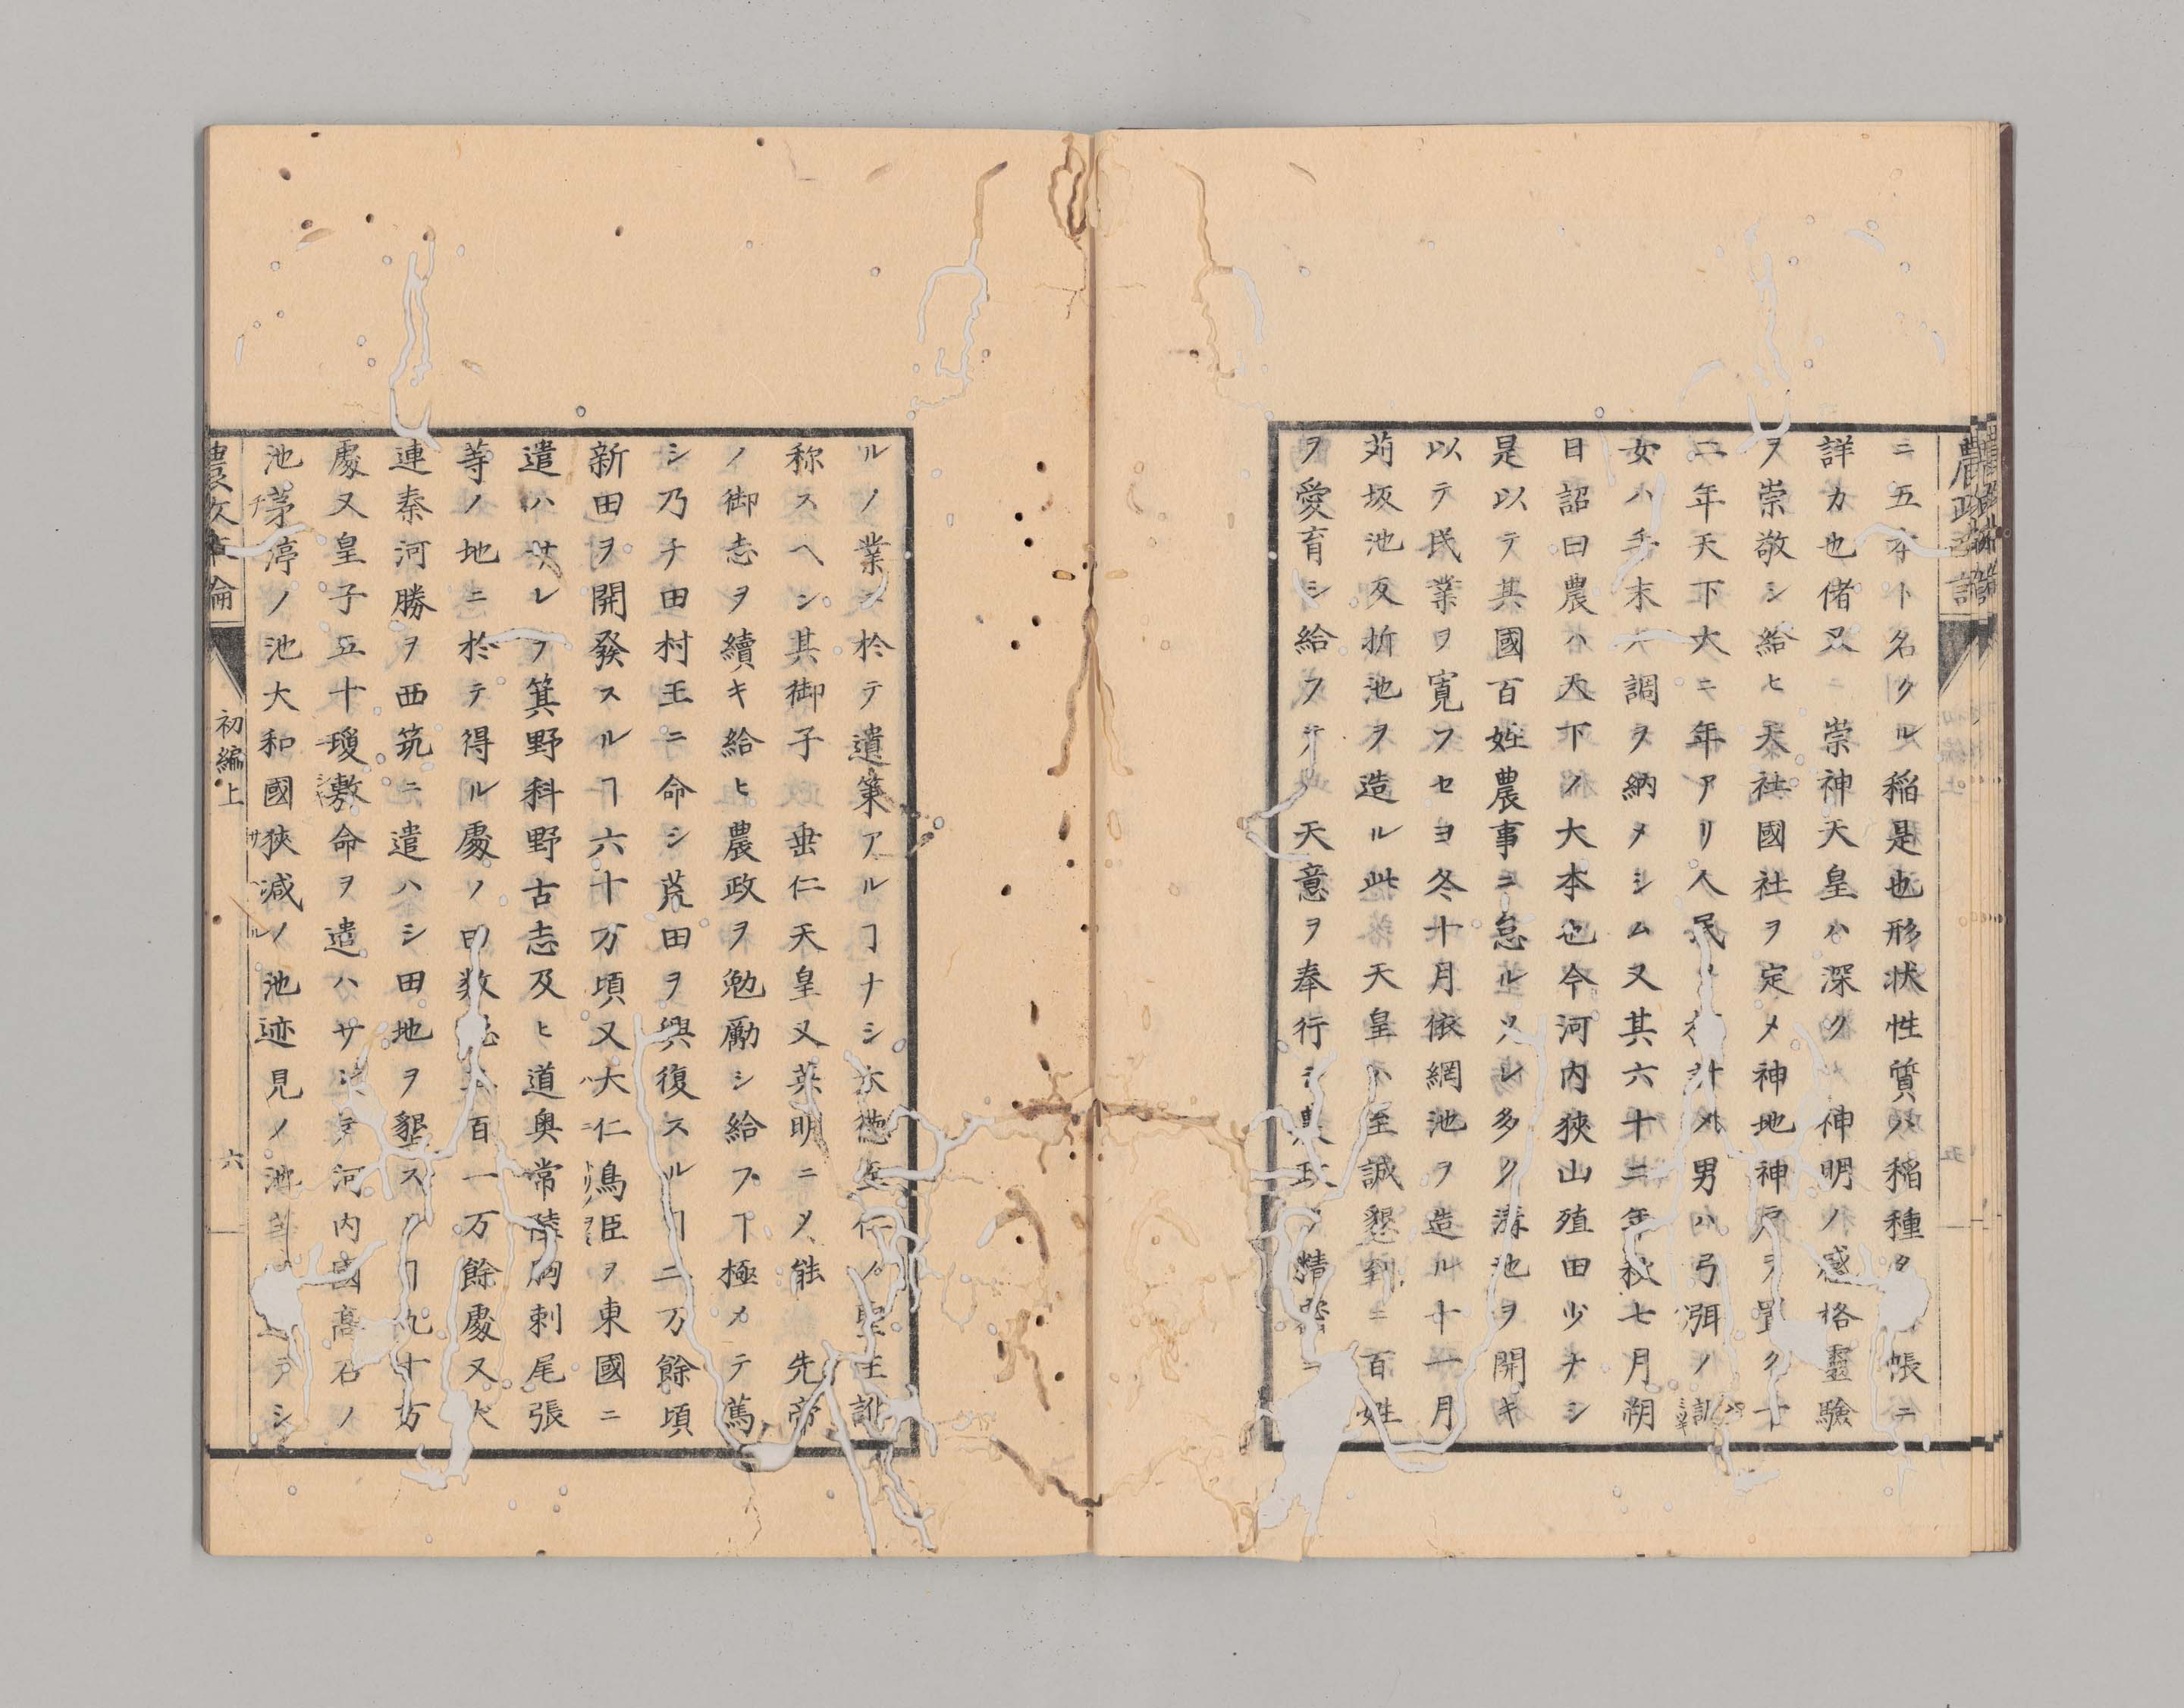 ニ五本ト名クル稲是也形状性質ハ稲種タ帳ニ
詳カ也偖又ニ崇神天皇ハ深ク神明ノ感格靈驗
ヲ崇敬シ給ヒ天社國社ヲ定メ神地神戸ヲ置ク十
二年天下大ニ年アリ人民ヲ計メ男ハ弓弭ノ調
女ハ手末ノ調ヲ納メシム又其六十二年秋七月朔
日詔曰農ハ天下ノ大本也今河内狹山殖田少ナシ
是以テ其國百姓農事ニ怠ルソレ多ク溝池ヲ開キ
以テ民業ヲ寛フセヨ冬十月依網池ヲ造ル十一月
苅坂池反折池ヲ造ル此天皇ハ至誠懇到ニ百姓
ヲ愛育シ給フテ天意ヲ奉行シ農政ノ精密ニ
ルノ業シ於テ遺筞アルヿナシ亦德至仁ノ聖主ト
称スヘシ其御子垂仁天皇又英明ニメ能先帝
ノ御志ヲ續キ給ヒ農政ヲ勉勵シ給フヿ極メテ篤
シ乃チ田村王ニ命シ荒田ヲ興復スルヿ二万餘頃
新田ヲ開發スルヿ六十万頃又大仁鳥臣ヲ東國ニ
遣ハサレテ箕野科野古志及ヒ道奥常陸胸刺尾張
等ノ地ニ於テ得ル處ノ田数百一万餘處又大
連秦河勝ヲ西筑ニ遣ハシ田地ヲ墾スルヿ九十万
處又皇子五十瓊敷命ヲ遣ハサレテ河内國髙石ノ
池茅渟ノ池大和國狹減ノ池迹見ノ池テシ
初編上
六